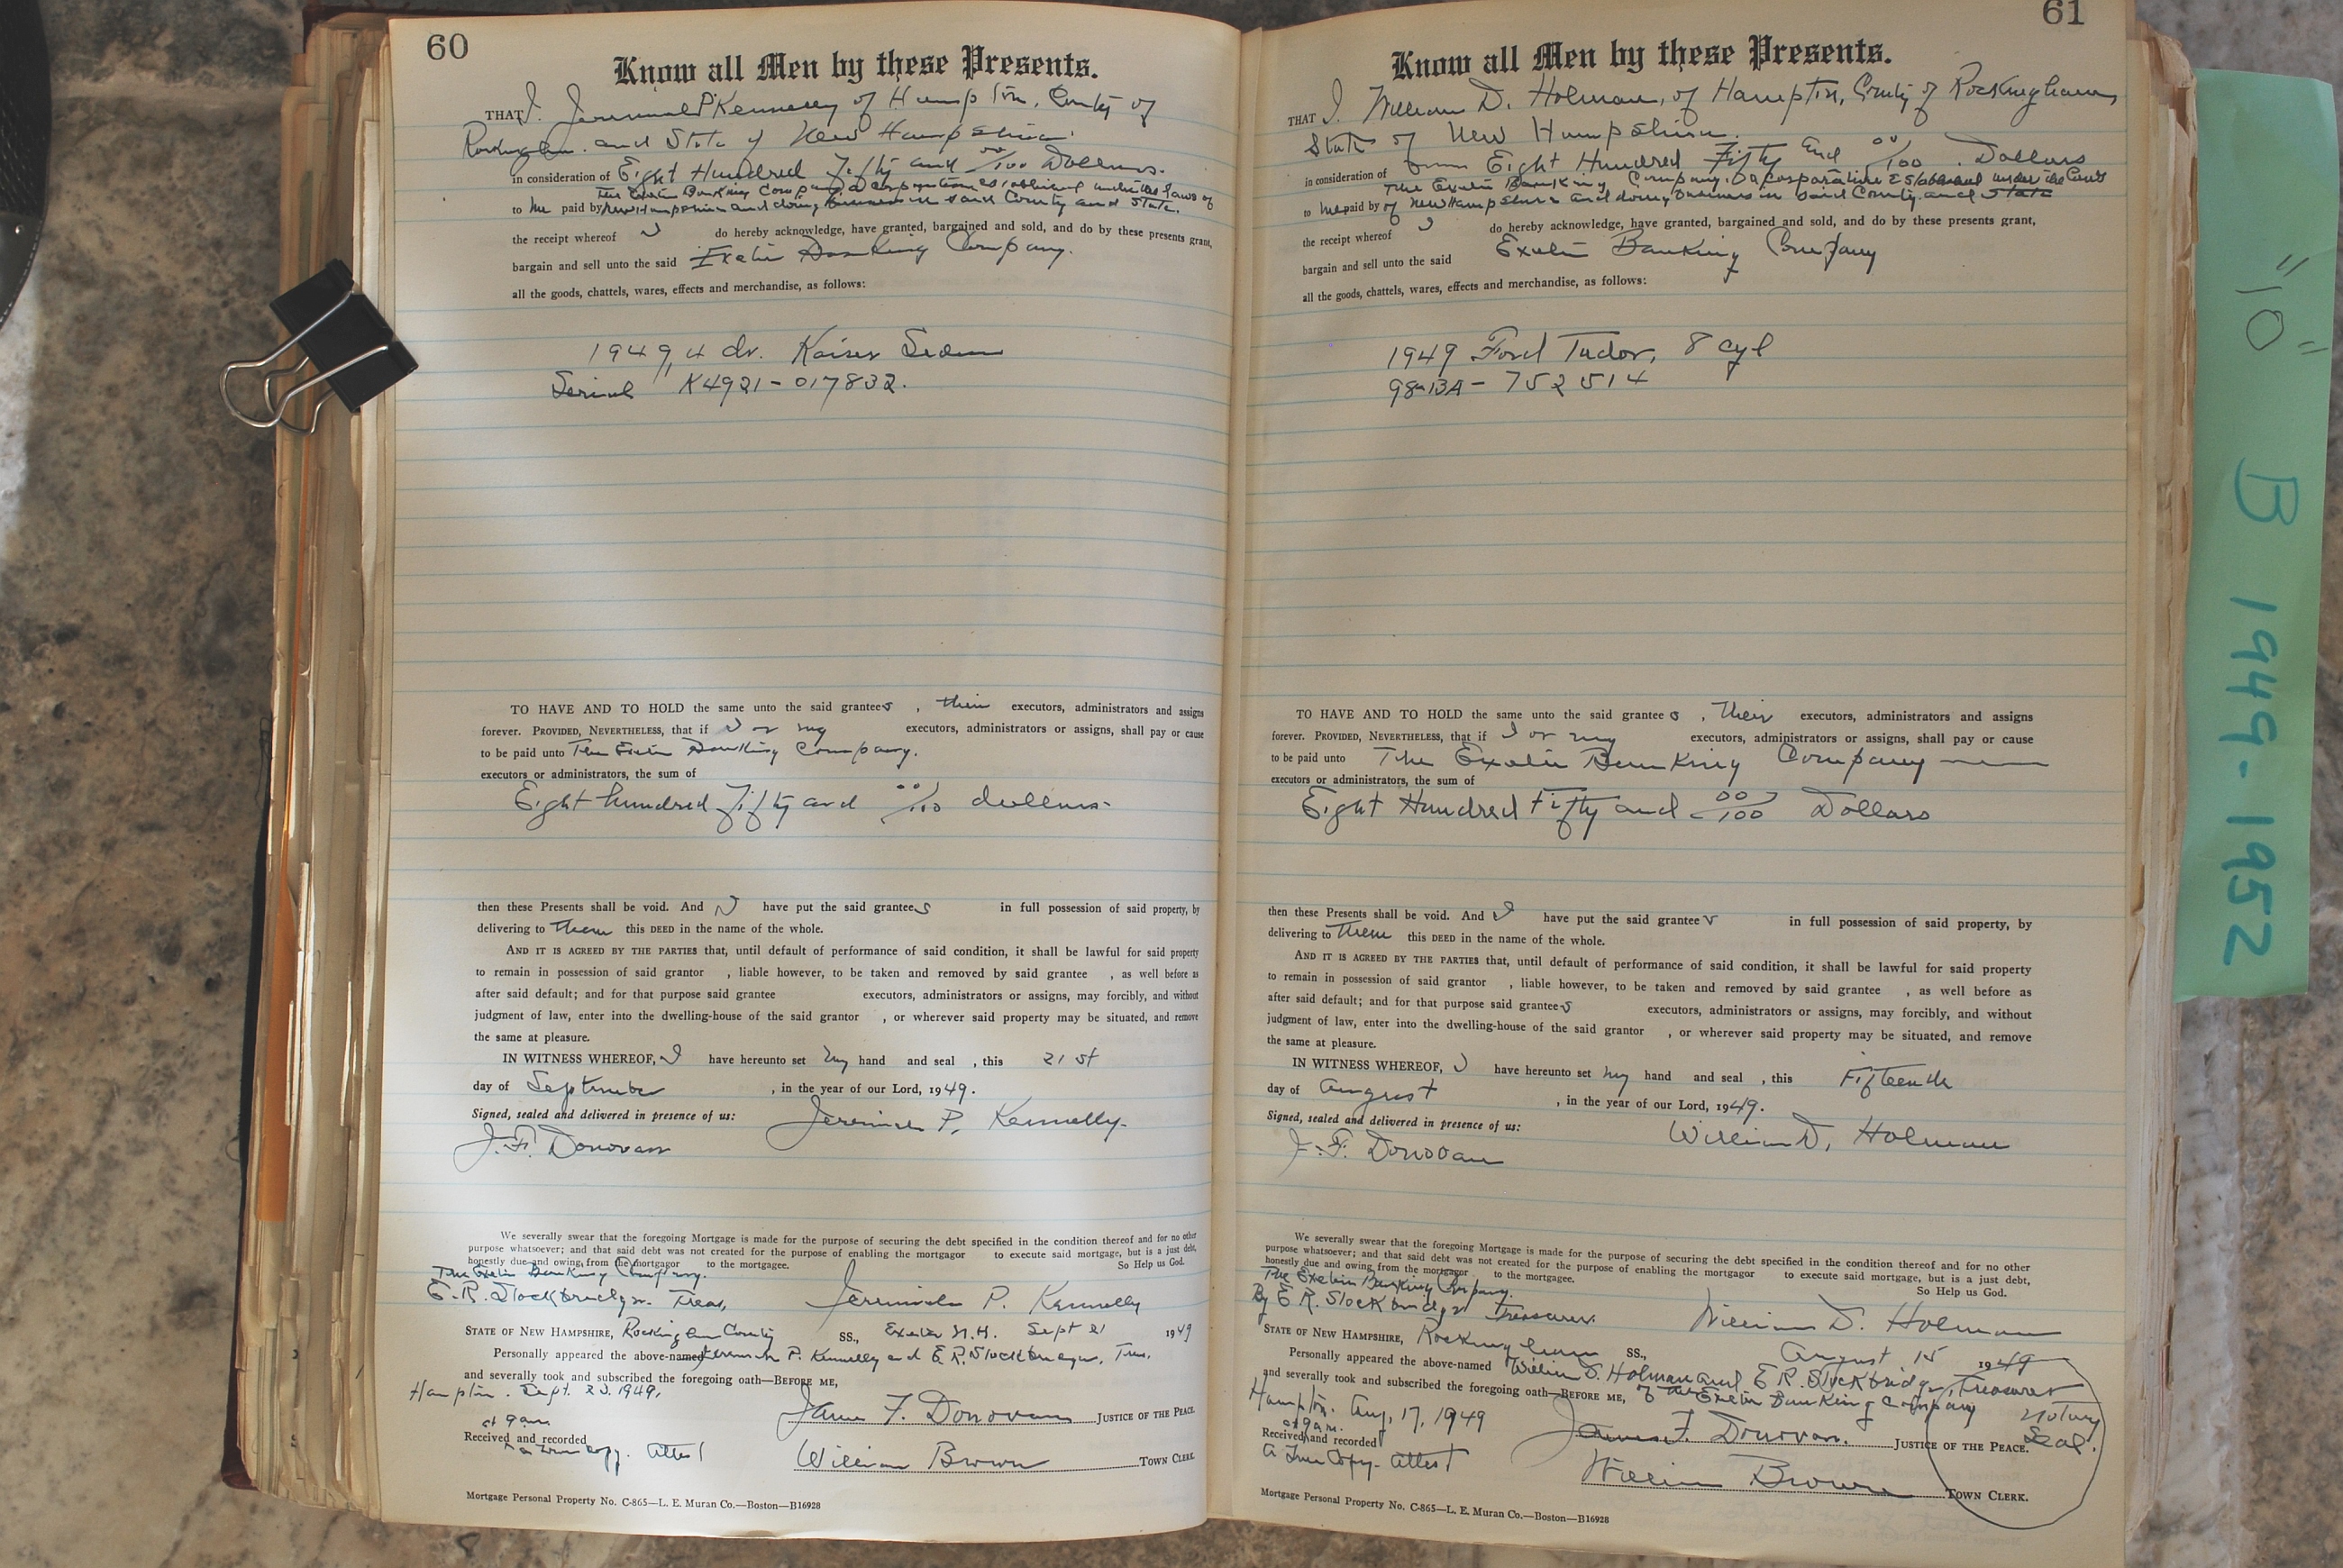 60
Know all Men by these Presents.
THAT I. Jeremiah P Kennelly of Hampton, County of
Rockingham. and State of New Hampshire.
in consideration of Eight Hundred Fifty and 00/100 Dollars.
The Exeter Banking Company, a corporation established under the laws of
to me paid by New Hampshire and doing business in said County and State.
the receipt whereof I do hereby acknowledge, have granted, bargained and sold, and do by these presents grant,
bargain and sell unto the said Exeter Banking Company.
all the goods, chattels, wares, effects and merchandise, as follows:
1949, 4 dr. Kaiser Sedan
Serial K4921-017832.
TO HAVE AND TO HOLD the same unto the said grantees , their executors, administrators and assigns
forever. PROVIDED, NEVERTHELESS, that if I or my executors, administrators or assigns, shall pay or cause
to be paid unto The Exeter Banking Company.
executors or administrators, the sum of
Eight hundred Fifty and 00/100 dollars-
then these Presents shall be void. And I have put the said grantees in full possession of said property, by
delivering to them this DEED in the name of the whole.
AND IT IS AGREED BY THE PARTIES that, until default of performance of said condition, it shall be lawful for said property
to remain in possession of said grantor , liable however, to be taken and removed by said grantee , as well before as
after said default; and for that purpose said grantee executors, administrators or assigns, may forcibly, and without
judgment of law, enter into the dwelling-house of the said grantor , or wherever said property may be situated, and remove
the same at pleasure.
IN WITNESS WHEREOF, I have hereunto set my hand and seal , this 21st
day of September , in the year of our Lord, 1949.
Signed, sealed and delivered in presence of us: Jeremiah P. Kennelly.
J. F. Donovan
We severally swear that the foregoing Mortgage is made for the purpose of securing the debt specified in the condition thereof and for no other
purpose whatsoever; and that said debt was not created for the purpose of enabling the mortgagor to execute said mortgage, but is a just debt,
honestly due and owing from the mortgagor to the mortgagee. So Help us God.
The Exeter Banking Company.
E. R. Stockbridge. Treas, Jeremiah P. Kennelly
STATE OF NEW HAMPSHIRE, Rockingham County SS., Exeter N.H. Sept 21 1949
Personally appeared the above-named Jeremiah P. Kennelly and E. R. Stockbridge, Treas.
and severally took and subscribed the foregoing oath—BEFORE ME,
Hampton. Sept. 23. 1949,
at 9 am James F. Donovan JUSTICE OF THE PEACE.
Received and recorded
a true copy. Attest William Brown TOWN CLERK.
Mortgage Personal Property No. C-865—L. E. Muran Co.—Boston—B16928
61
Know all Men by these Presents.
THAT I. William D. Holman, of Hampton, County of Rockingham,
State of New Hampshire.
in consideration of Eight Hundred Fifty and 00/100 . Dollars
The Exeter Banking Company, a corporation established under the laws
to me paid by of New Hampshire and doing business in said County and State
the receipt whereof I do hereby acknowledge, have granted, bargained and sold, and do by these presents grant,
bargain and sell unto the said Exeter Banking Company
all the goods, chattels, wares, effects and merchandise, as follows:
1949 Ford Tudor, 8 cyl
98-BA- 752514
TO HAVE AND TO HOLD the same unto the said grantees , their executors, administrators and assigns
forever. PROVIDED, NEVERTHELESS, that if I or my executors, administrators or assigns, shall pay or cause
to be paid unto The Exeter Banking Company
executors or administrators, the sum of
Eight Hundred Fifty and 00/100 Dollars
then these Presents shall be void. And I have put the said grantees in full possession of said property, by
delivering to them this DEED in the name of the whole.
AND IT IS AGREED BY THE PARTIES that, until default of performance of said condition, it shall be lawful for said property
to remain in possession of said grantor , liable however, to be taken and removed by said grantee , as well before as
after said default; and for that purpose said grantees executors, administrators or assigns, may forcibly, and without
judgment of law, enter into the dwelling-house of the said grantor , or wherever said property may be situated, and remove
the same at pleasure.
IN WITNESS WHEREOF, I have hereunto set my hand and seal , this Fifteenth
day of August , in the year of our Lord, 1949.
Signed, sealed and delivered in presence of us: William D. Holman
J. F. Donovan
We severally swear that the foregoing Mortgage is made for the purpose of securing the debt specified in the condition thereof and for no other
purpose whatsoever; and that said debt was not created for the purpose of enabling the mortgagor to execute said mortgage, but is a just debt,
honestly due and owing from the mortgagor to the mortgagee. So Help us God.
The Exeter Banking Company.
By E. R. Stockbridge Treasurer. William D. Holman
STATE OF NEW HAMPSHIRE, Rockingham SS., August 15 1949
Personally appeared the above-named William D. Holman and E. R. Stockbridge, Treasurer
and severally took and subscribed the foregoing oath—BEFORE ME, of the Exeter Banking Company
Hampton. Aug, 17, 1949 Notary
at 9 a.m. Seal.
Received and recorded James F. Donovan. JUSTICE OF THE PEACE.
A True Copy- Attest William Brown TOWN CLERK.
Mortgage Personal Property No. C-865—L. E. Muran Co.—Boston—B16928
"10" B 1949-1952